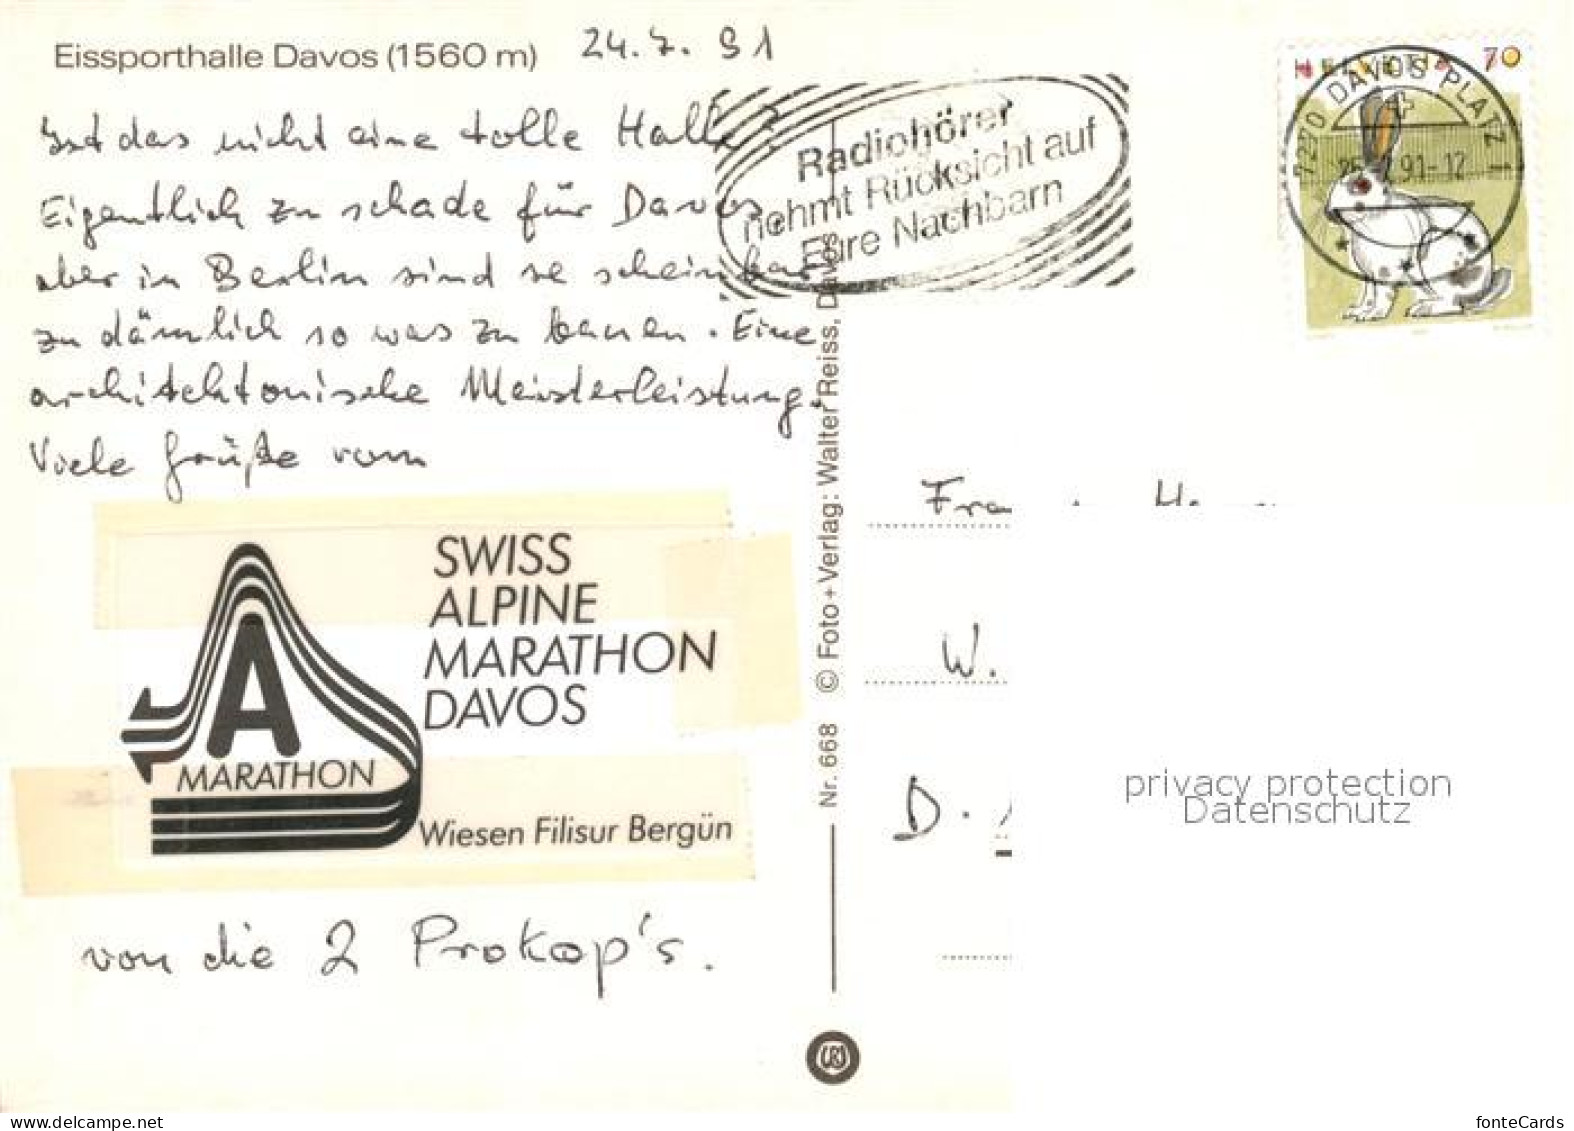 Eissporthalle Davos (1560 m)
24.7.91
Ist das nicht eine tolle Halle?
Eigentlich zu schade für Davos,
aber in Berlin sind se scheinbar
zu dämlich so was zu bauen. Eine
architektonische Meisterleistung.
Viele Grüße vom
SWISS
ALPINE
MARATHON
DAVOS
A
MARATHON
Wiesen Filisur Bergün
von die 2 Prokop's.
Radiohörer
nehmt Rücksicht auf
Eure Nachbarn
HELVETIA 70
7270 DAVOS PLATZ 1
91-12
Nr. 668 © Foto + Verlag: Walter Reiss, Davos
W.
D.
privacy protection
Datenschutz
www.delcampe.net
fonteCards